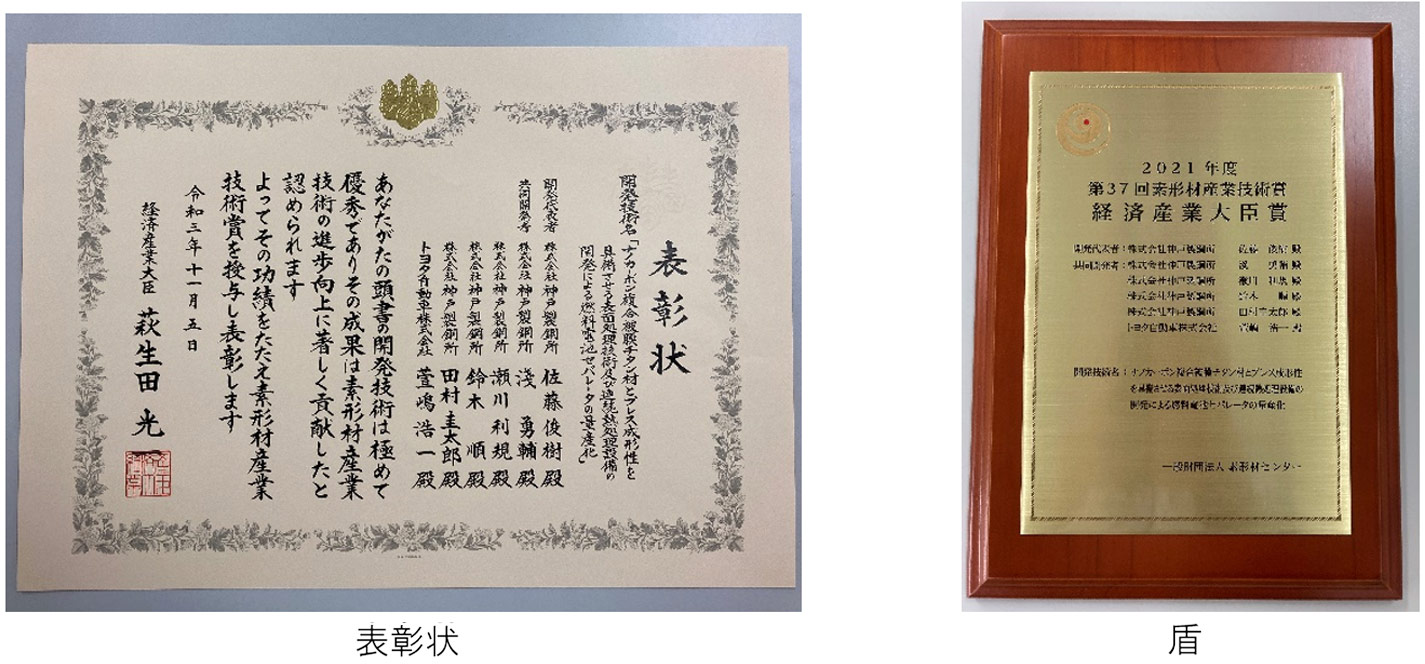 表彰状
開発技術名「ナノカーボン複合被膜チタン材とプレス成形性を
具備させる表面処理技術及び連続熱処理設備の
開発による燃料電池セパレータの量産化」
開発代表者 株式会社神戸製鋼所 佐藤俊樹殿
共同開発者 株式会社神戸製鋼所 淺 勇輔殿
株式会社神戸製鋼所 瀬川利規殿
株式会社神戸製鋼所 鈴木 順殿
株式会社神戸製鋼所 田村圭太郎殿
トヨタ自動車株式会社 萱嶋浩一殿
あなたがたの頭書の開発技術は極めて
優秀でありその成果は素形材産業
技術の進歩向上に著しく貢献したと
認められます
よってその功績をたたえ素形材産業
技術賞を授与し表彰します
令和三年十一月五日
経済産業大臣 萩生田光一
表彰状
2021年度
第37回素形材産業技術賞
経済産業大臣賞
開発代表者:株式会社神戸製鋼所 佐藤 俊樹 殿
共同開発者:株式会社神戸製鋼所 淺 勇輔 殿
株式会社神戸製鋼所 瀬川 利規 殿
株式会社神戸製鋼所 鈴木 順 殿
株式会社神戸製鋼所 田村圭太郎 殿
トヨタ自動車株式会社 萱嶋 浩一 殿
開発技術名:ナノカーボン複合被膜チタン材とプレス成形性
を具備させる表面処理技術及び連続熱処理設備の
開発による燃料電池セパレータの量産化
一般財団法人 素形材センター
盾